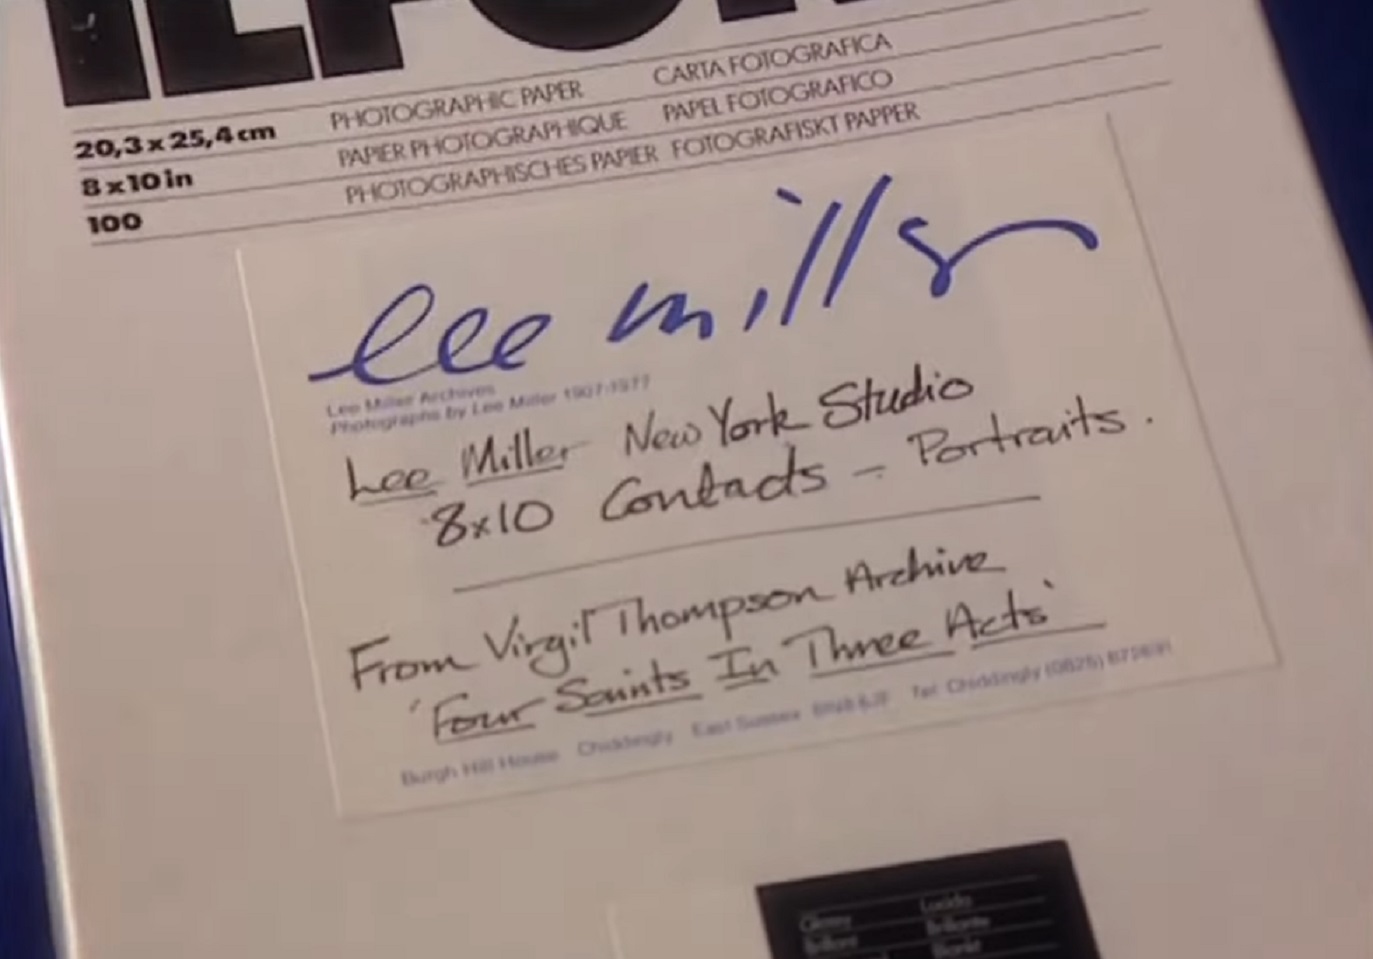 ILFO
20,3 x 25,4 cm
8 x 10 in
100
PHOTOGRAPHIC PAPER CARTA FOTOGRAFICA
PAPIER PHOTOGRAPHIQUE PAPEL FOTOGRAFICO
PHOTOGRAPHISCHES PAPIER FOTOGRAFISKT PAPPER
lee miller
Lee Miller Archives
Photographs by Lee Miller 1907-1977
Lee Miller New York Studio
8x10 Contacts – Portraits.
From Virgil Thompson Archive
'Four Saints In Three Acts'
Burgh Hill House Chiddingly East Sussex BN8 6JF Tel: Chiddingly (0825)
Glossy Lucido
Brillant Brillante
Blankt